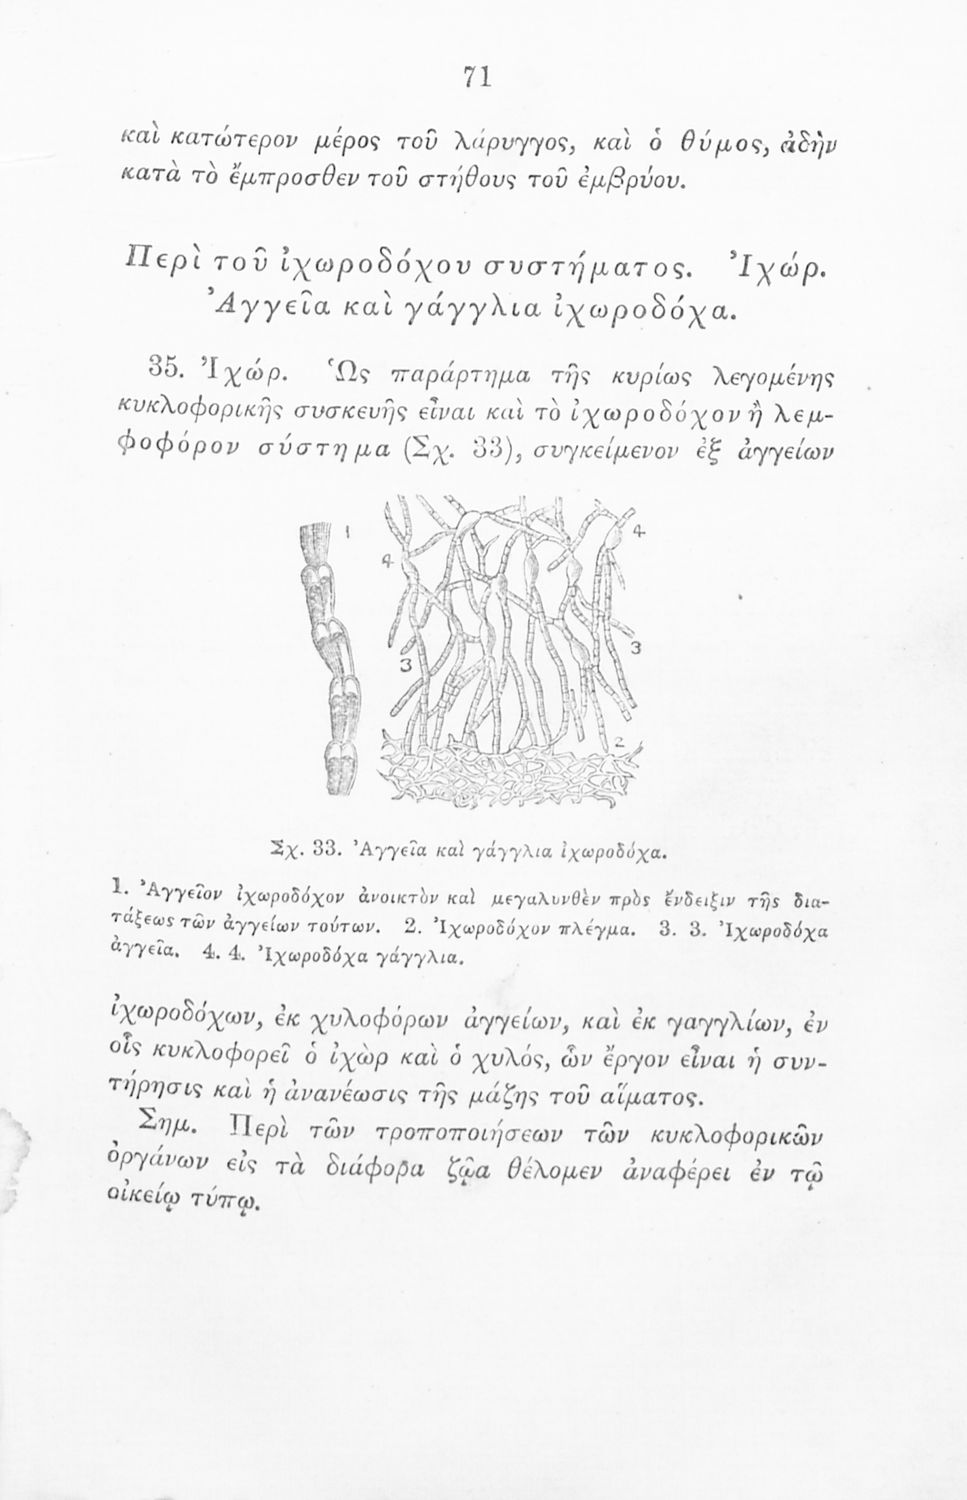 71
καὶ κατώτερον μέρος τοῦ λάρυγγος, καὶ ὁ θύμος, ἀδὴν
κατὰ τὸ ἔμπροσθεν τοῦ στήθους τοῦ ἐμβρύου.
Περὶ τοῦ ἰχωροδόχου συστήματος. Ἰχώρ.
Ἀγγεῖα καὶ γάγγλια ἰχωροδόχα.
35. Ἰχώρ. Ὡς παράρτημα τῆς κυρίως λεγομένης
κυκλοφορικῆς συσκευῆς εἶναι καὶ τὸ ἰχωροδόχον ἢ λεμ-
φοφόρον σύστημα (Σχ. 33), συγκείμενον ἐξ ἀγγείων
1
4
4
3
3
2
Σχ. 33. Ἀγγεῖα καὶ γάγγλια ἰχωροδόχα.
1. Ἀγγεῖον ἰχωροδόχον ἀνοικτὸν καὶ μεγαλυνθὲν πρὸς ἔνδειξιν τῆς δια-
τάξεως τῶν ἀγγείων τούτων. 2. Ἰχωροδόχον πλέγμα. 3. 3. Ἰχωροδόχα
ἀγγεῖα. 4. 4. Ἰχωροδόχα γάγγλια.
ἰχωροδόχων, ἐκ χυλοφόρων ἀγγείων, καὶ ἐκ γαγγλίων, ἐν
οἷς κυκλοφορεῖ ὁ ἰχὼρ καὶ ὁ χυλός, ὧν ἔργον εἶναι ἡ συν-
τήρησις καὶ ἡ ἀνανέωσις τῆς μάζης τοῦ αἵματος.
Σημ. Περὶ τῶν τροποποιήσεων τῶν κυκλοφορικῶν
ὀργάνων εἰς τὰ διάφορα ζῷα θέλομεν ἀναφέρει ἐν τῷ
οἰκείῳ τύπῳ.